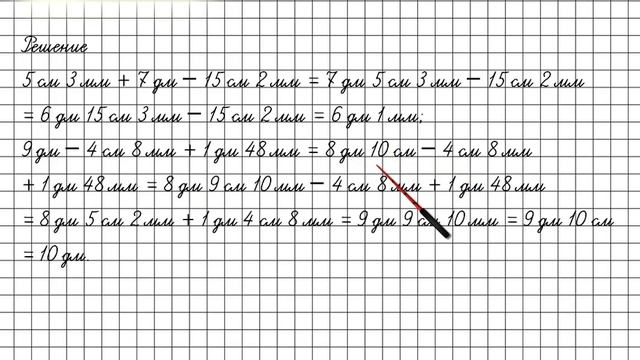 Решение
5 см 3 мм + 7 дм − 15 см 2 мм = 7 дм 5 см 3 мм − 15 см 2 мм
= 6 дм 15 см 3 мм − 15 см 2 мм = 6 дм 1 мм;
9 дм − 4 см 8 мм + 1 дм 48 мм = 8 дм 10 см − 4 см 8 мм
+ 1 дм 48 мм = 8 дм 9 см 10 мм − 4 см 8 мм + 1 дм 48 мм
= 8 дм 5 см 2 мм + 1 дм 4 см 8 мм = 9 дм 9 см 10 мм = 9 дм 10 см
= 10 дм.